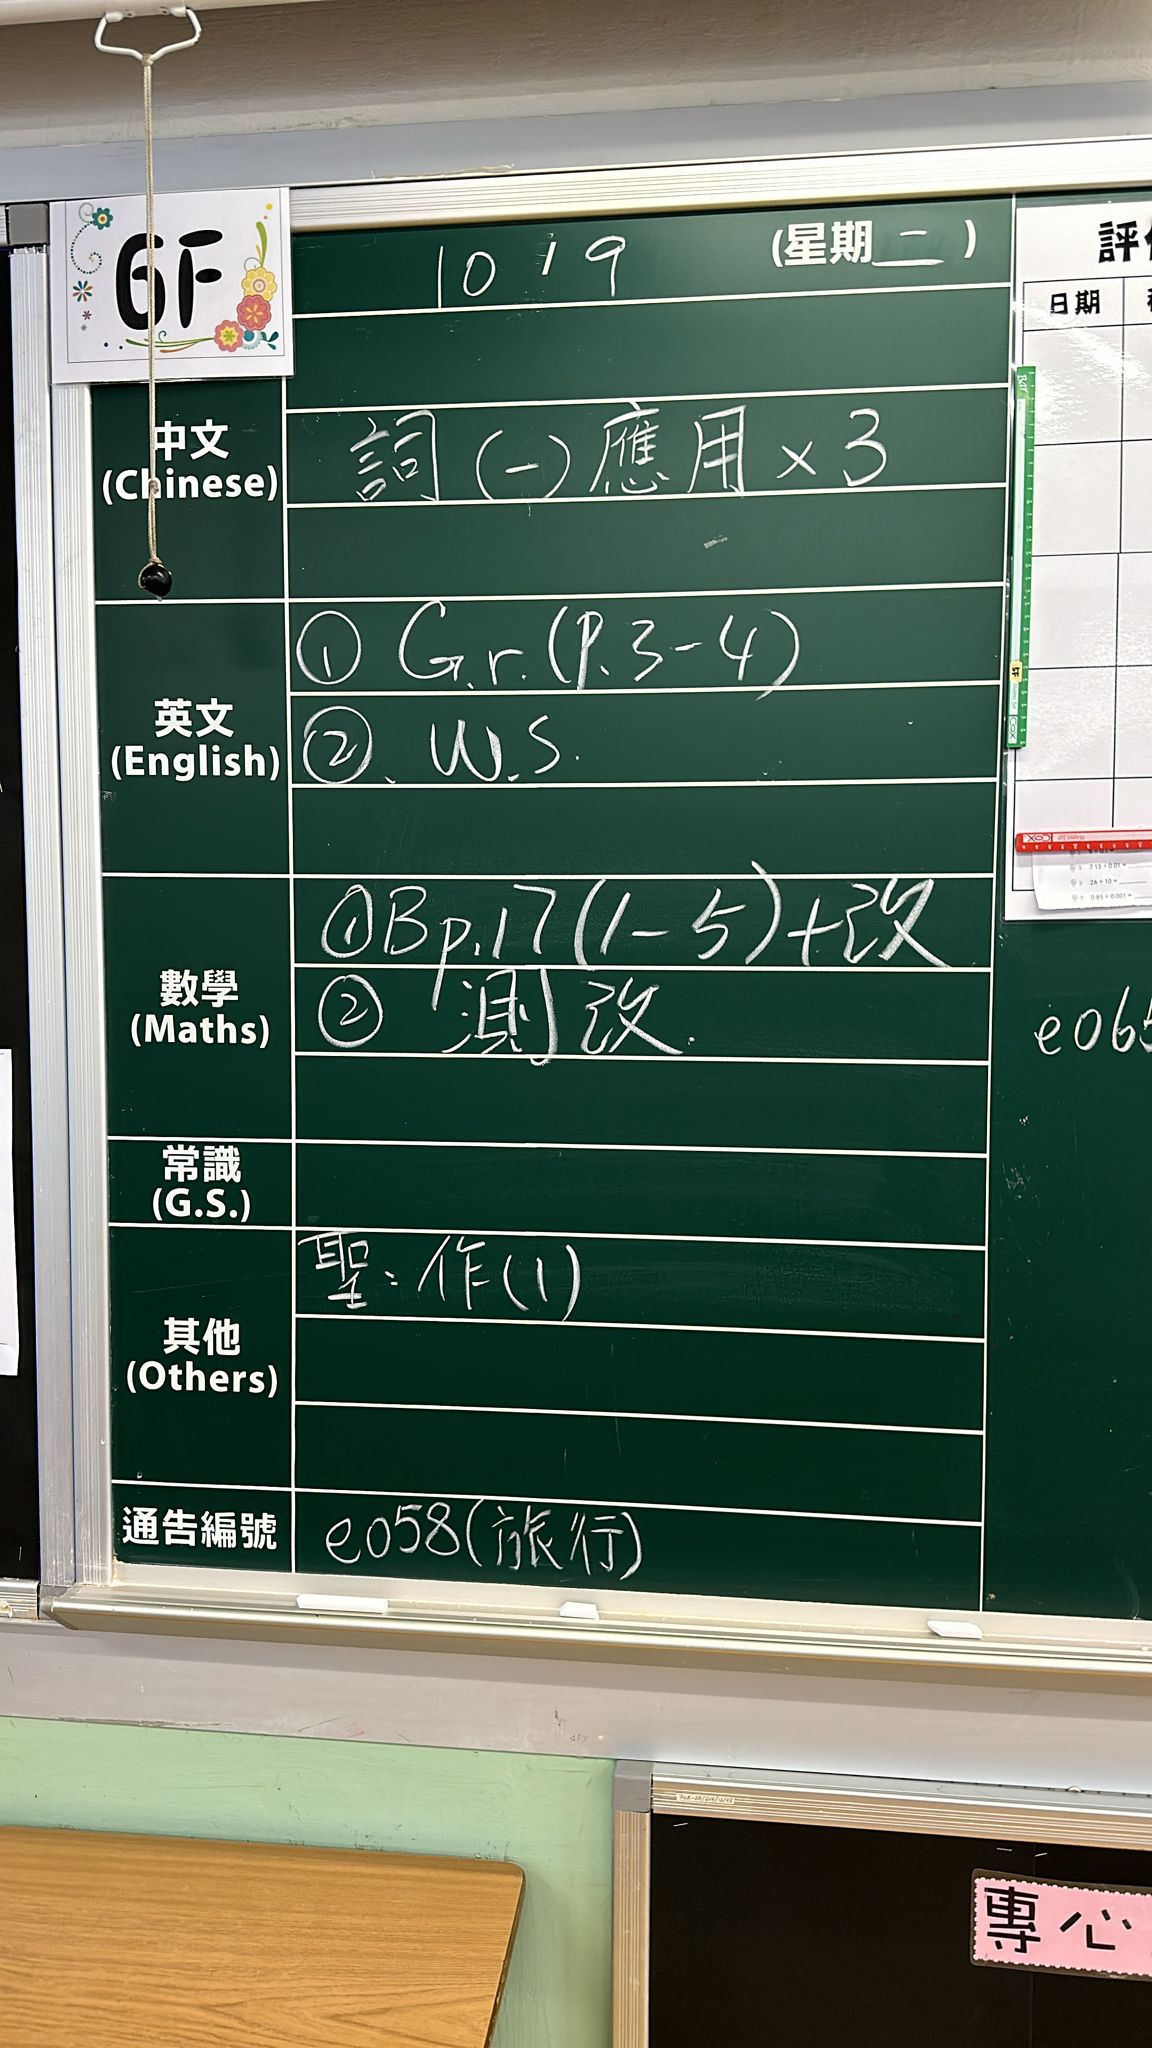 6F
10 / 9
(星期二)
中文
(Chinese)
詞(一)應用×3
英文
(English)
① G.r.(P.3-4)
②. W.S.
數學
(Maths)
①Bp.17(1-5)+改
② 測改.
常識
(G.S.)
其他
(Others)
聖:作(1)
通告編號
e058(旅行)
日期
e065
專心